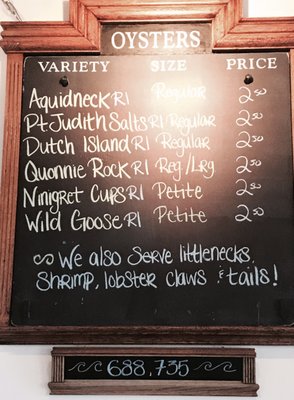 OYSTERS
VARIETY SIZE PRICE
Aquidneck RI Regular 2.50
Pt Judith Salts RI Regular 2.50
Dutch Island RI Regular 2.50
Quonnie Rock RI Reg/Lrg 2.50
Ninigret Cups RI Petite 2.50
Wild Goose RI Petite 2.50
We also Serve littlenecks,
Shrimp, lobster claws & tails!
688,735